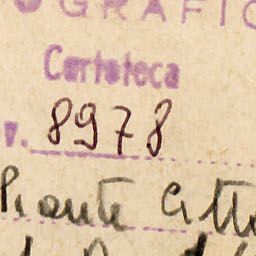 OGRAFIC
Cartoteca
n. 8978
Piante Citta